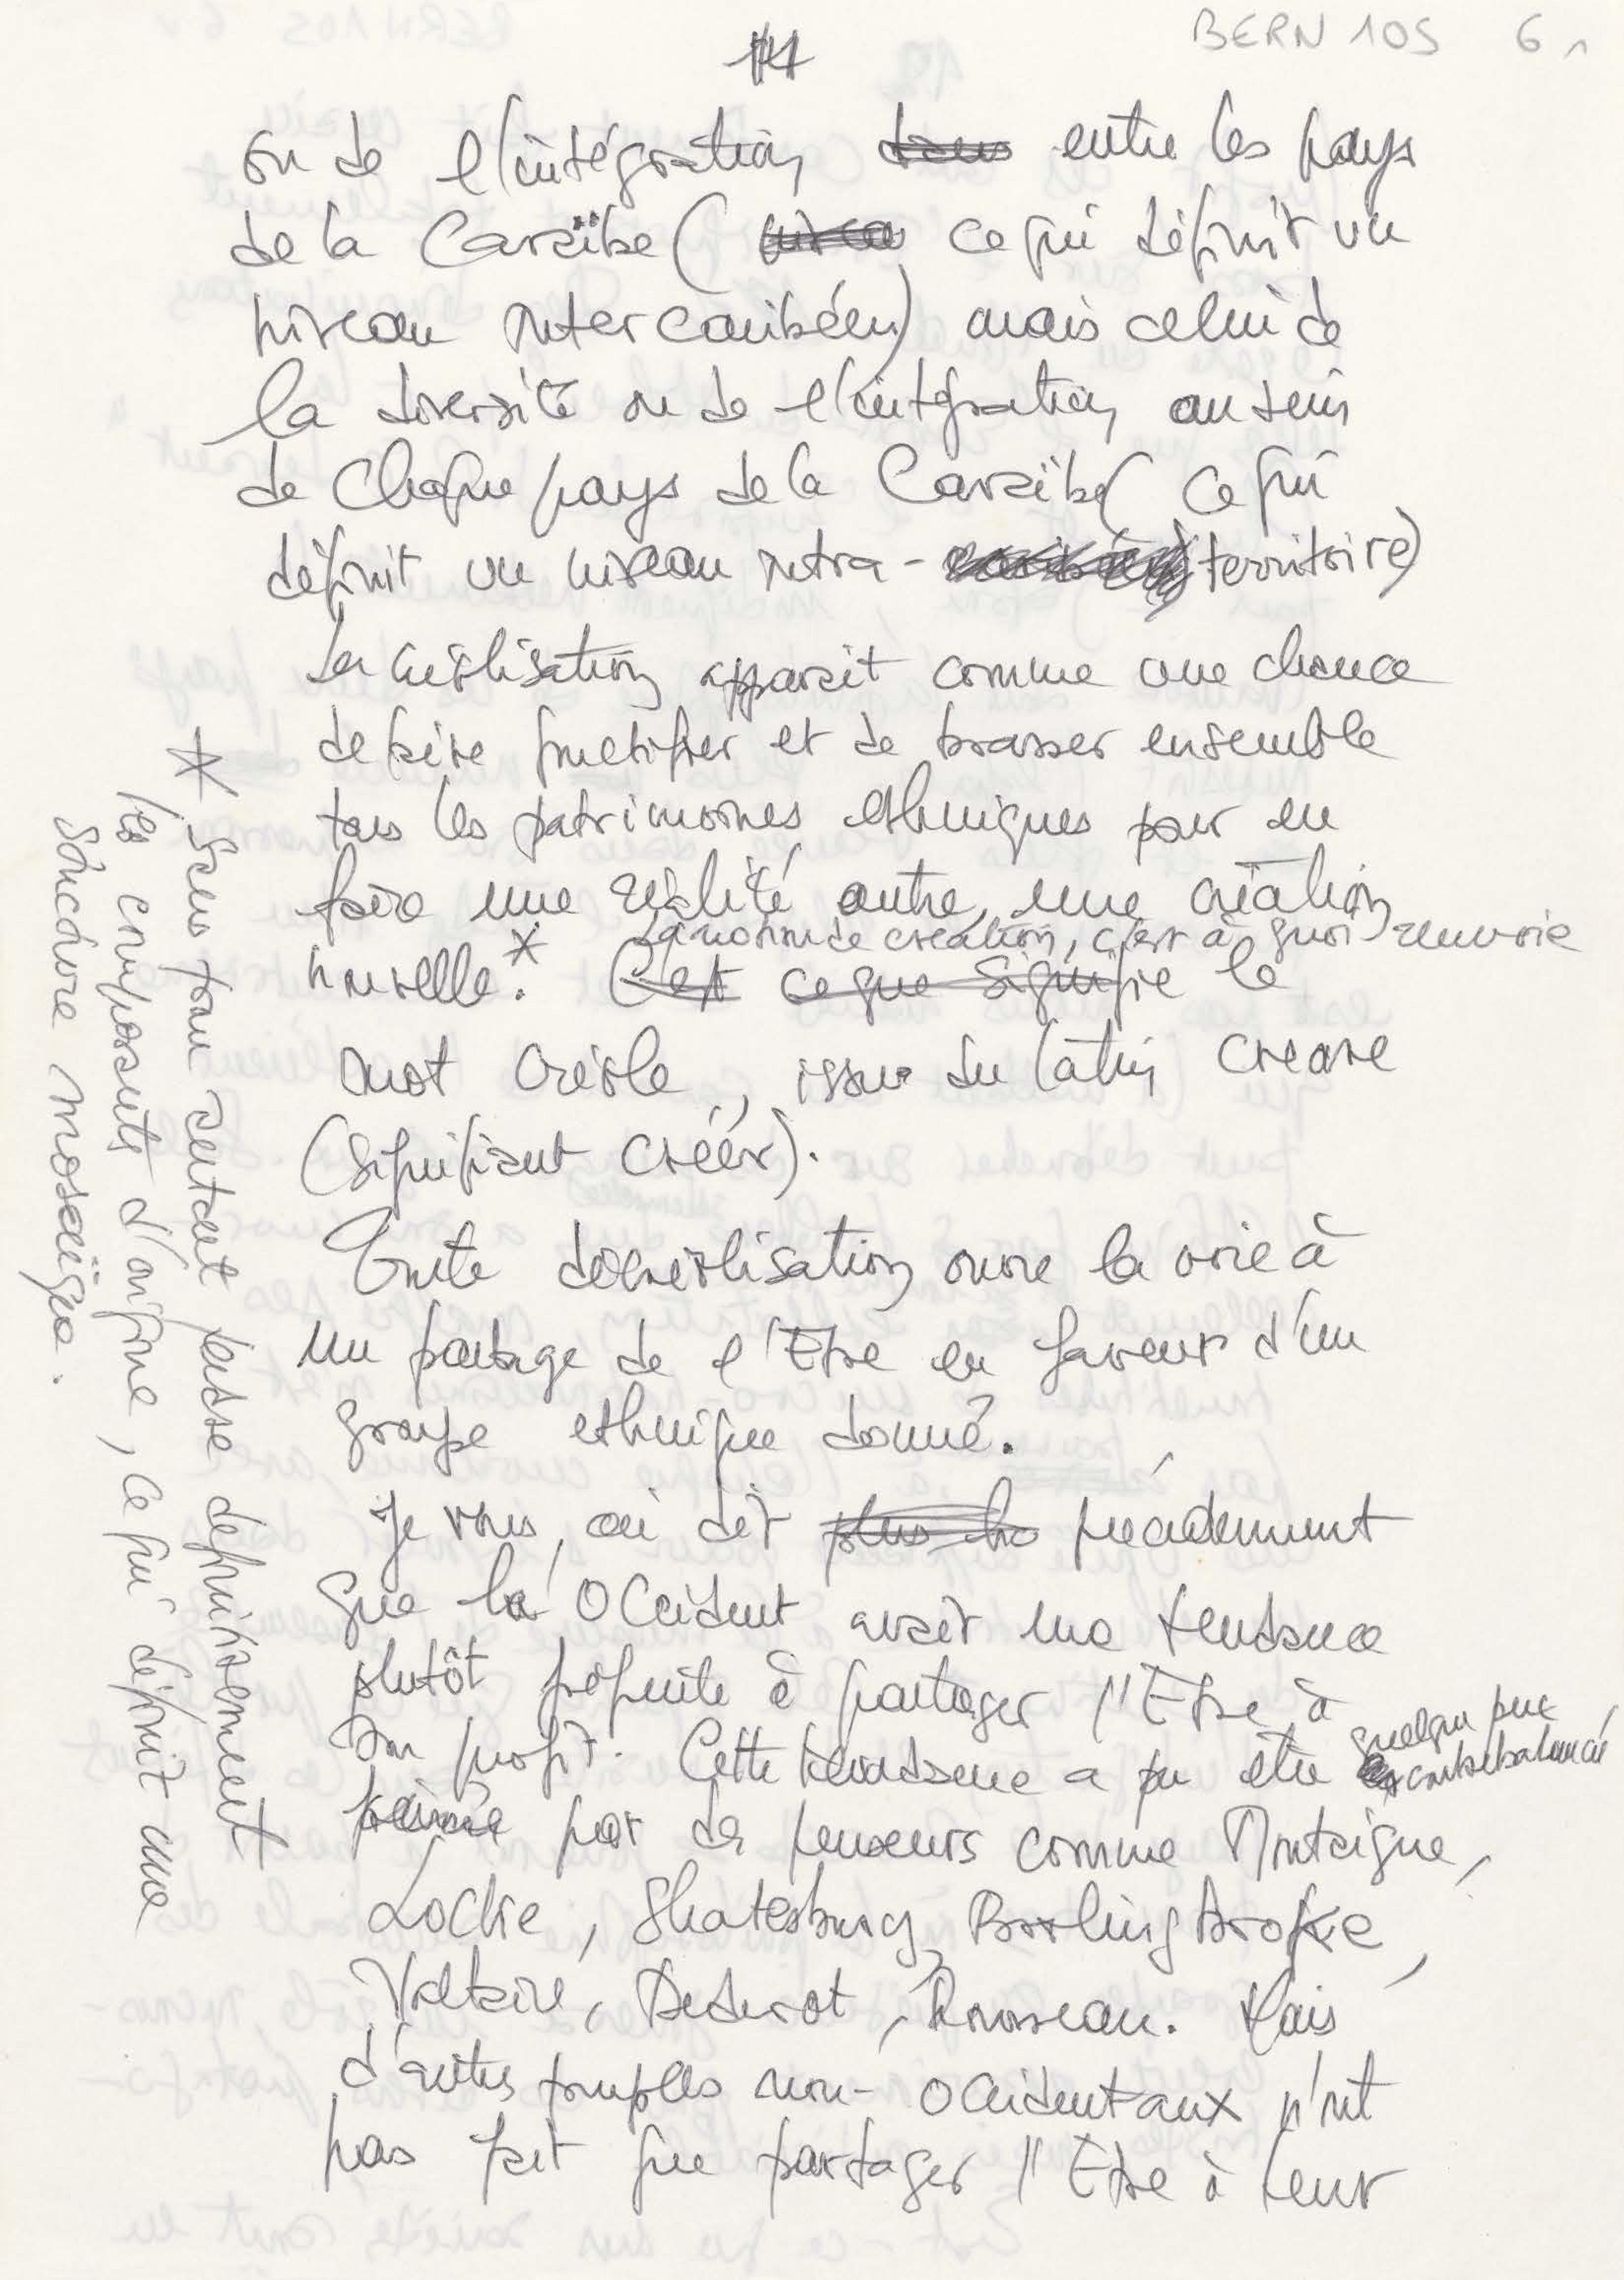 BERN 105 6
11
ou de l'intégration dans entre les pays
de la Caraïbe ( ce qui définit un
niveau inter caribéen) mais celui de
la diversité ou de l'intégration au sein
de chaque pays de la Caraïbe ( ce qui
définit un niveau intra - territoire)
La créolisation apparait comme une chance
de faire fructifier et de brasser ensemble
tous les patrimoines ethniques pour en
faire une réalité autre, une création
la notion de création, c'est à quoi renvoie
nouvelle.* C'est ce que signifie le
mot créole, issu du latin creare
(signifiant créer).
Toute décréolisation ouvre la voie à
un partage de l'Etre en faveur d'un
groupe ethnique donné.
Je vous ai dit plus ho précédemment
que l'Occident avait une tendance
plutôt à partager l'Etre à
son profit. Cette tendance a pu être
quelque peu
contrebalancé
par des penseurs comme Montaigne,
Locke, Shatesbury, Boolingbroke,
Voltaire, Diderot, Rousseau. Mais
d'autres peuples non-occidentaux n'ont
pas fait que partager l'Etre à leur
* sans pour autant définitivement
les composants d'origine, ce qui définit une
structure mosaïque.